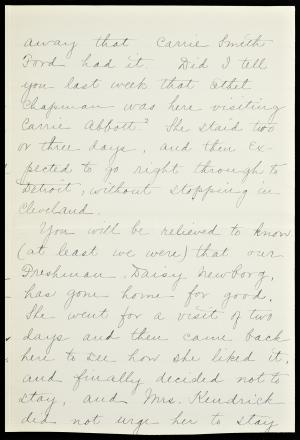 away that Carrie Smith
Ford had it. Did I tell
you last week that Ethel
Chapman was here visiting
Carrie Abbott? She staid two
or three days, and then ex-
pected to go right through to
Detroit, without stopping in
Cleveland.
You will be relieved to know
(at least we were) that our
Freshman, Daisy Newborg,
has gone home for good.
She went for a visit of two
days and then came back
here to see how she liked it,
and finally decided not to
stay, and Mrs. Kendrick
did not urge her to stay